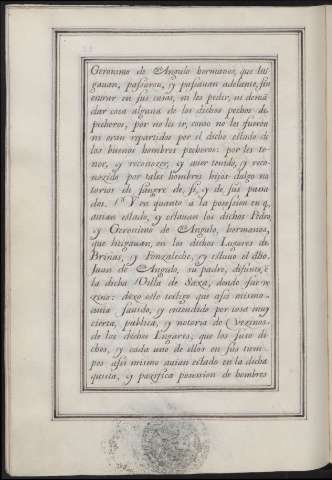 Geronimo de Angulo hermanos, que liti
gauan, passaron, y passauan adelante, sin
entrar en sus casas, ni les pedir, ni deman
dar cosa alguna de los dichos pechos de
pecheros, por no les ser, como no les fueron
ni eran repartidos por el dicho estado de
los buenos hombres pecheros: por les te
ner, y reconozer, y auer tenido, y reco
nozido por tales hombres hijos dalgo no
torios de sangre de si, y de sus passa
dos. Y en quanto a la possession en q̃
auian estado, y estauan los dichos Pedro,
y Geronimo de Angulo, hermanos,
que litigauan, en los dichos Lugares de
Briñas, y Fonzaleche, y estuuo el dho
Juan de Angulo, su padre, difunto, ē
la dicha Villa de Saxa, donde fue ve
zino: dixo este testigo que assi mismo
auia sauido, y entendido por cosa muy
cierta, publica, y notoria de Vezinos
de los dichos Lugares, que los suso di
chos, y cada uno de ellos en sus tiem
pos assi mismo auian estado en la dicha
quieta, y pazifica possession de hombres